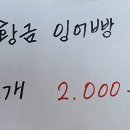 황금 잉어빵
개 2.000-